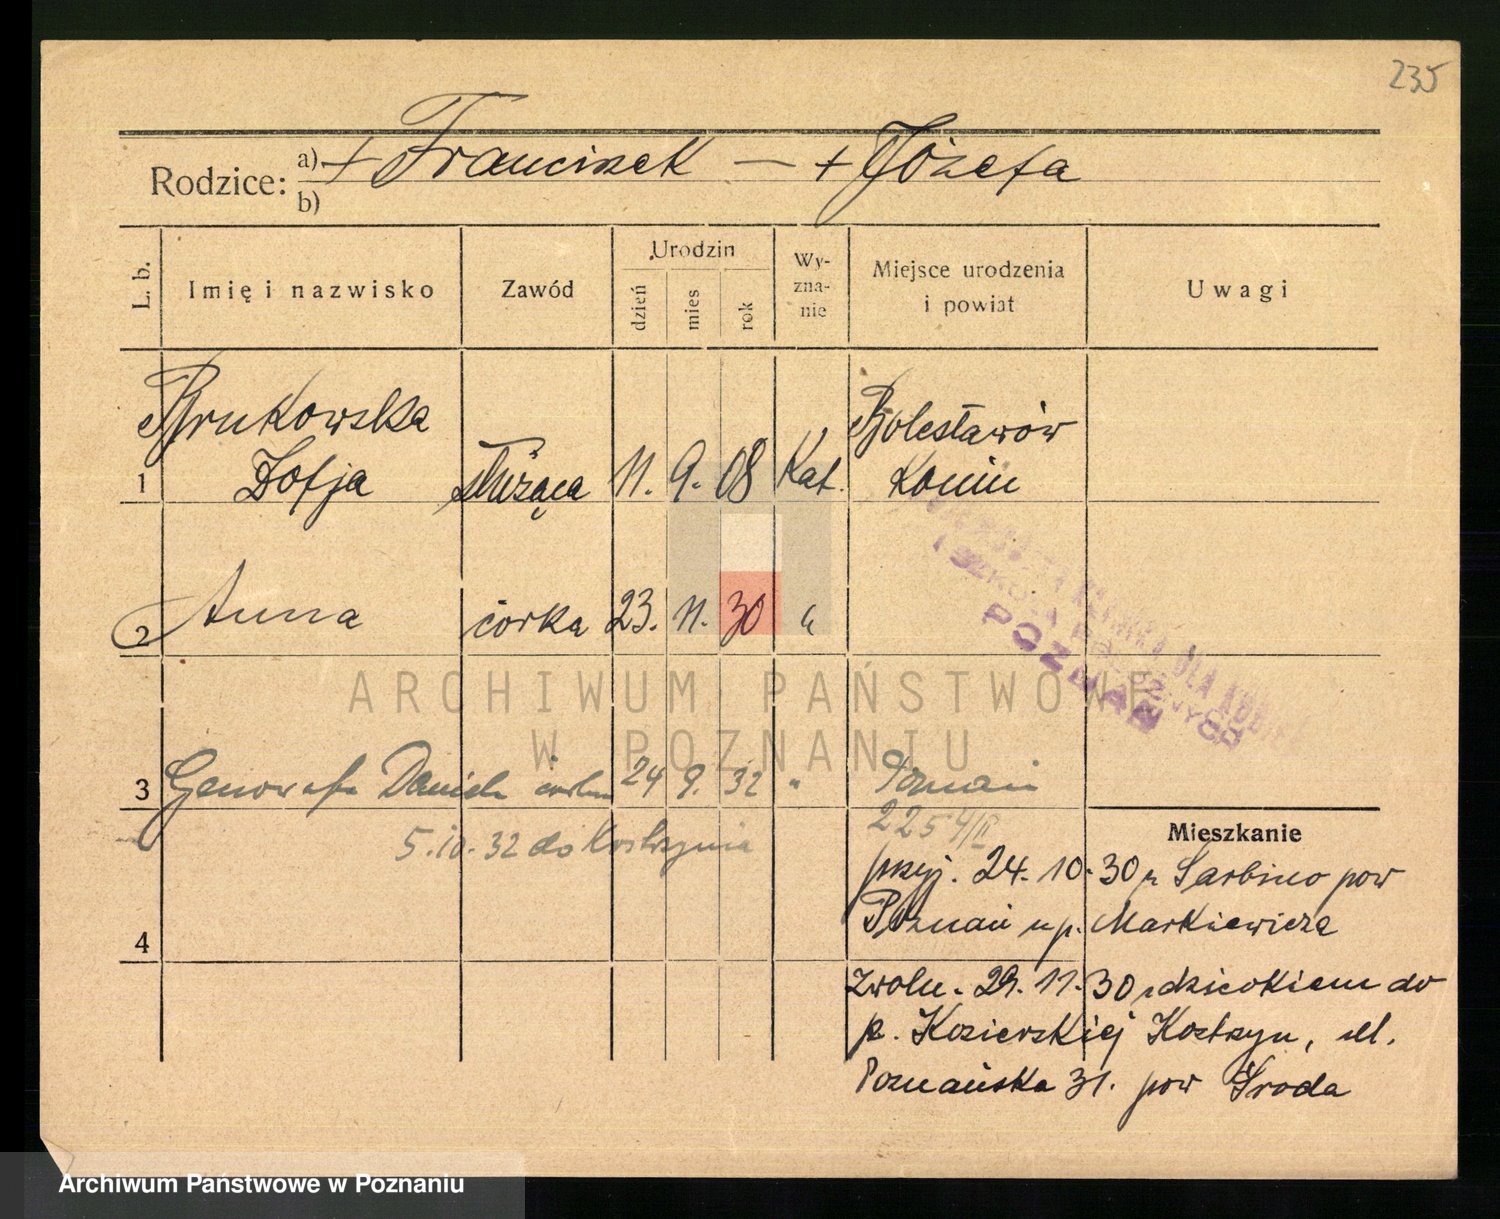 235
Rodzice: a) + Franciszek — + Józefa
b)
L. b.
Imię i nazwisko
Zawód
Urodzin
dzień
mies
rok
Wy-
zna-
nie
Miejsce urodzenia
i powiat
Uwagi
Brukowska
Zofja
1
służąca
11. 9. 08
Kat.
Bolesławów
Konin
2
Anna
córka
23. 11. 30
"
I SZKOŁA POŁOŻNYCH
POZNAŃ
3
Genowefa Daniela córka 24 9. 32 " Poznań
5.10.32 do Kostrzynia
2254/II
Mieszkanie
przyj. 24.10.30 z Sarbino pow
Poznań u p. Markiewicza
4
zwoln. 29.11.30 z dzieckiem do
p. Kozierskiej Kostrzyn, ul.
Poznańska 31. pow Środa
ARCHIWUM PAŃSTWOWE
W POZNANIU
Archiwum Państwowe w Poznaniu